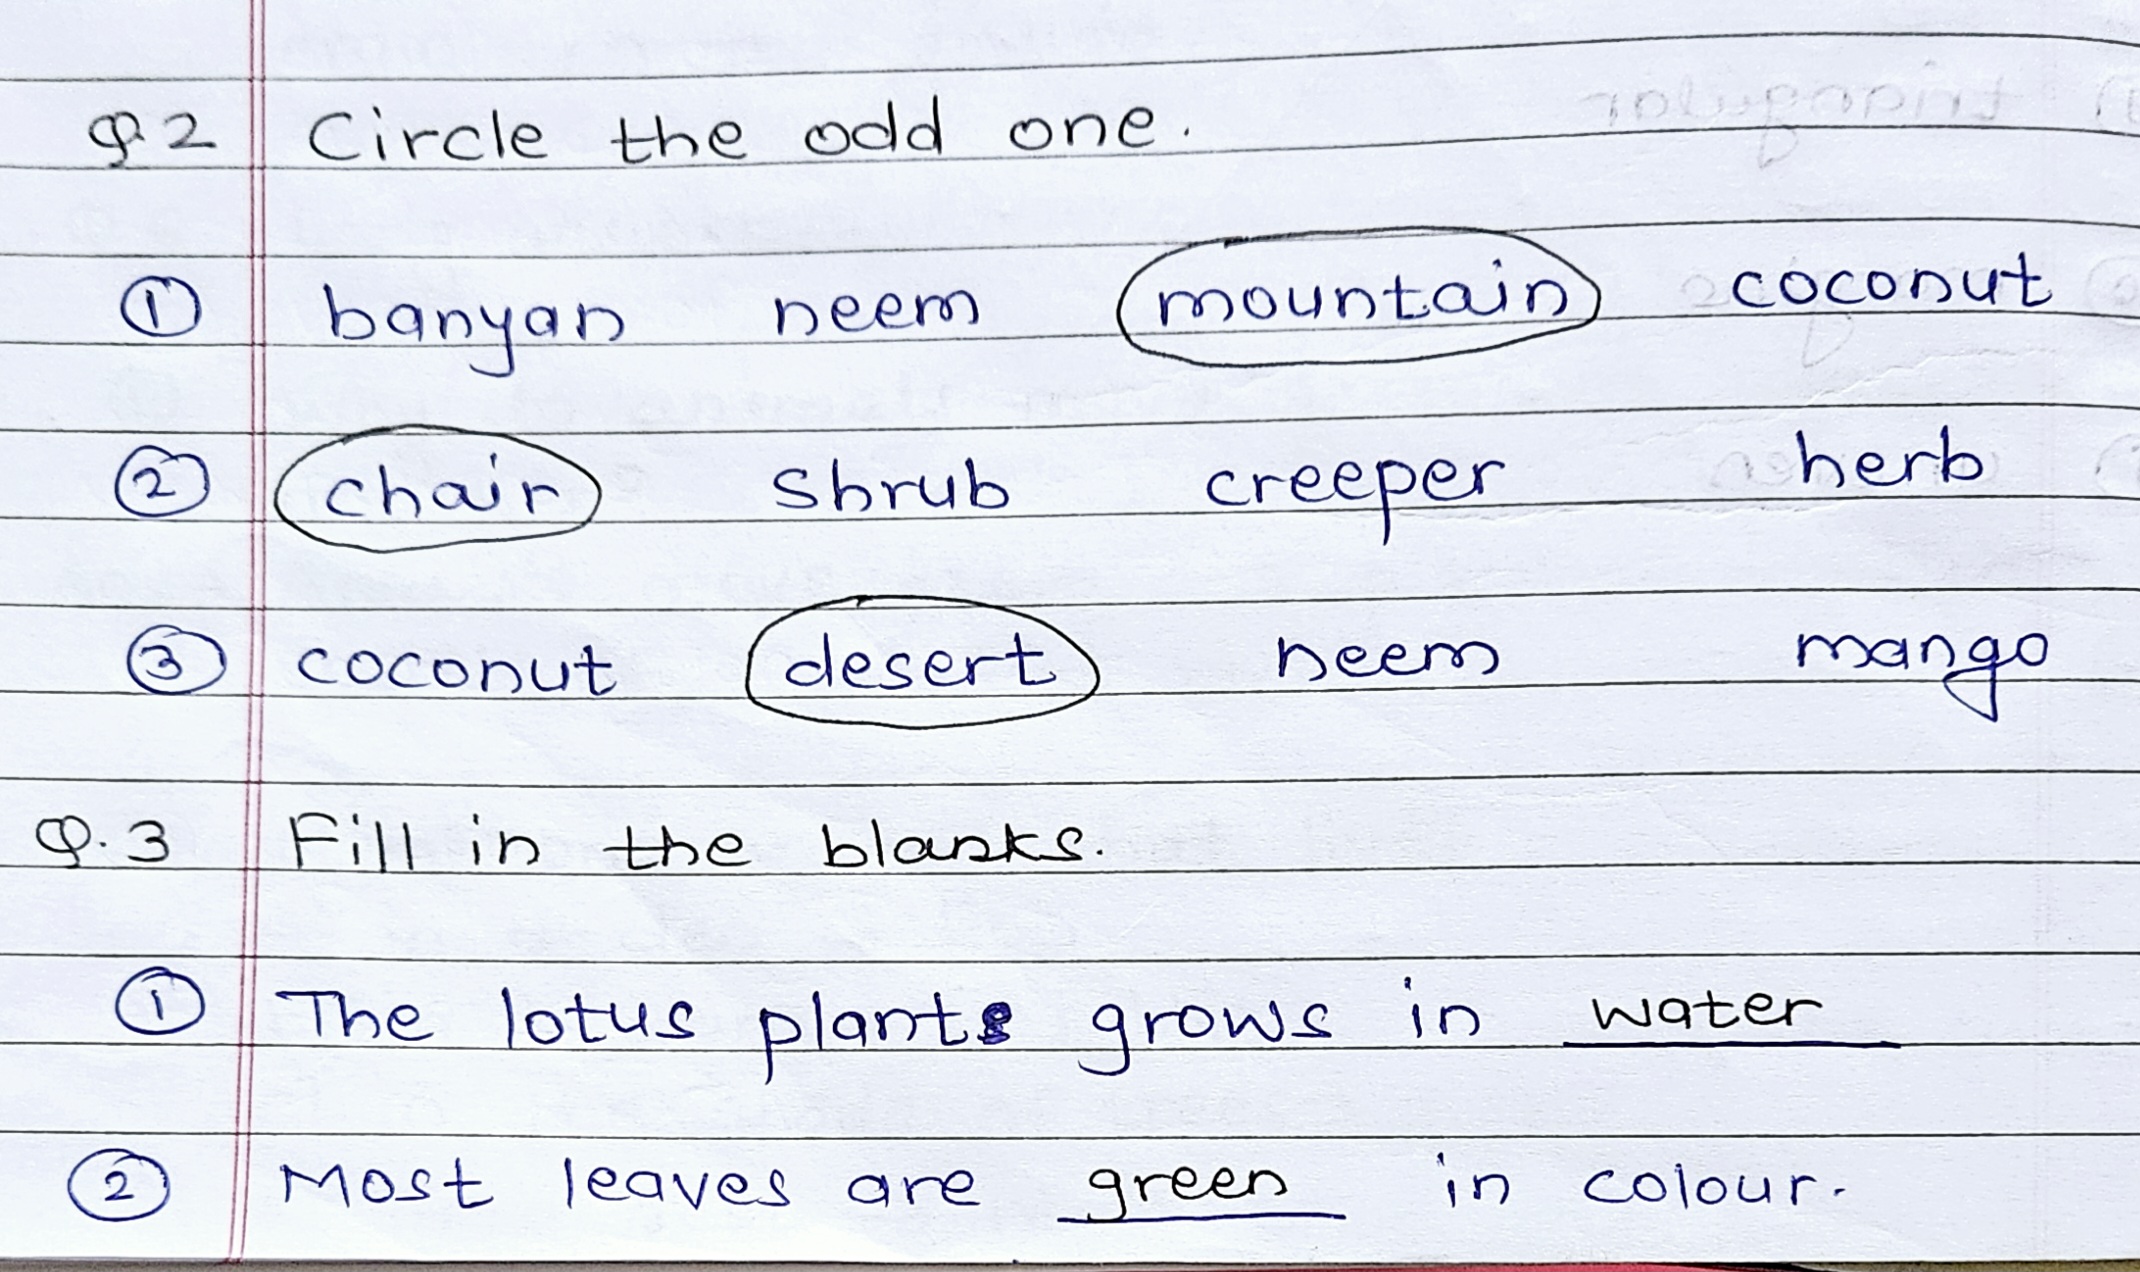 Q.2 Circle the odd one.
① banyan neem mountain coconut
② chair shrub creeper herb
③ coconut desert neem mango
Q.3 Fill in the blanks.
① The lotus plants grows in water
② Most leaves are green in colour.